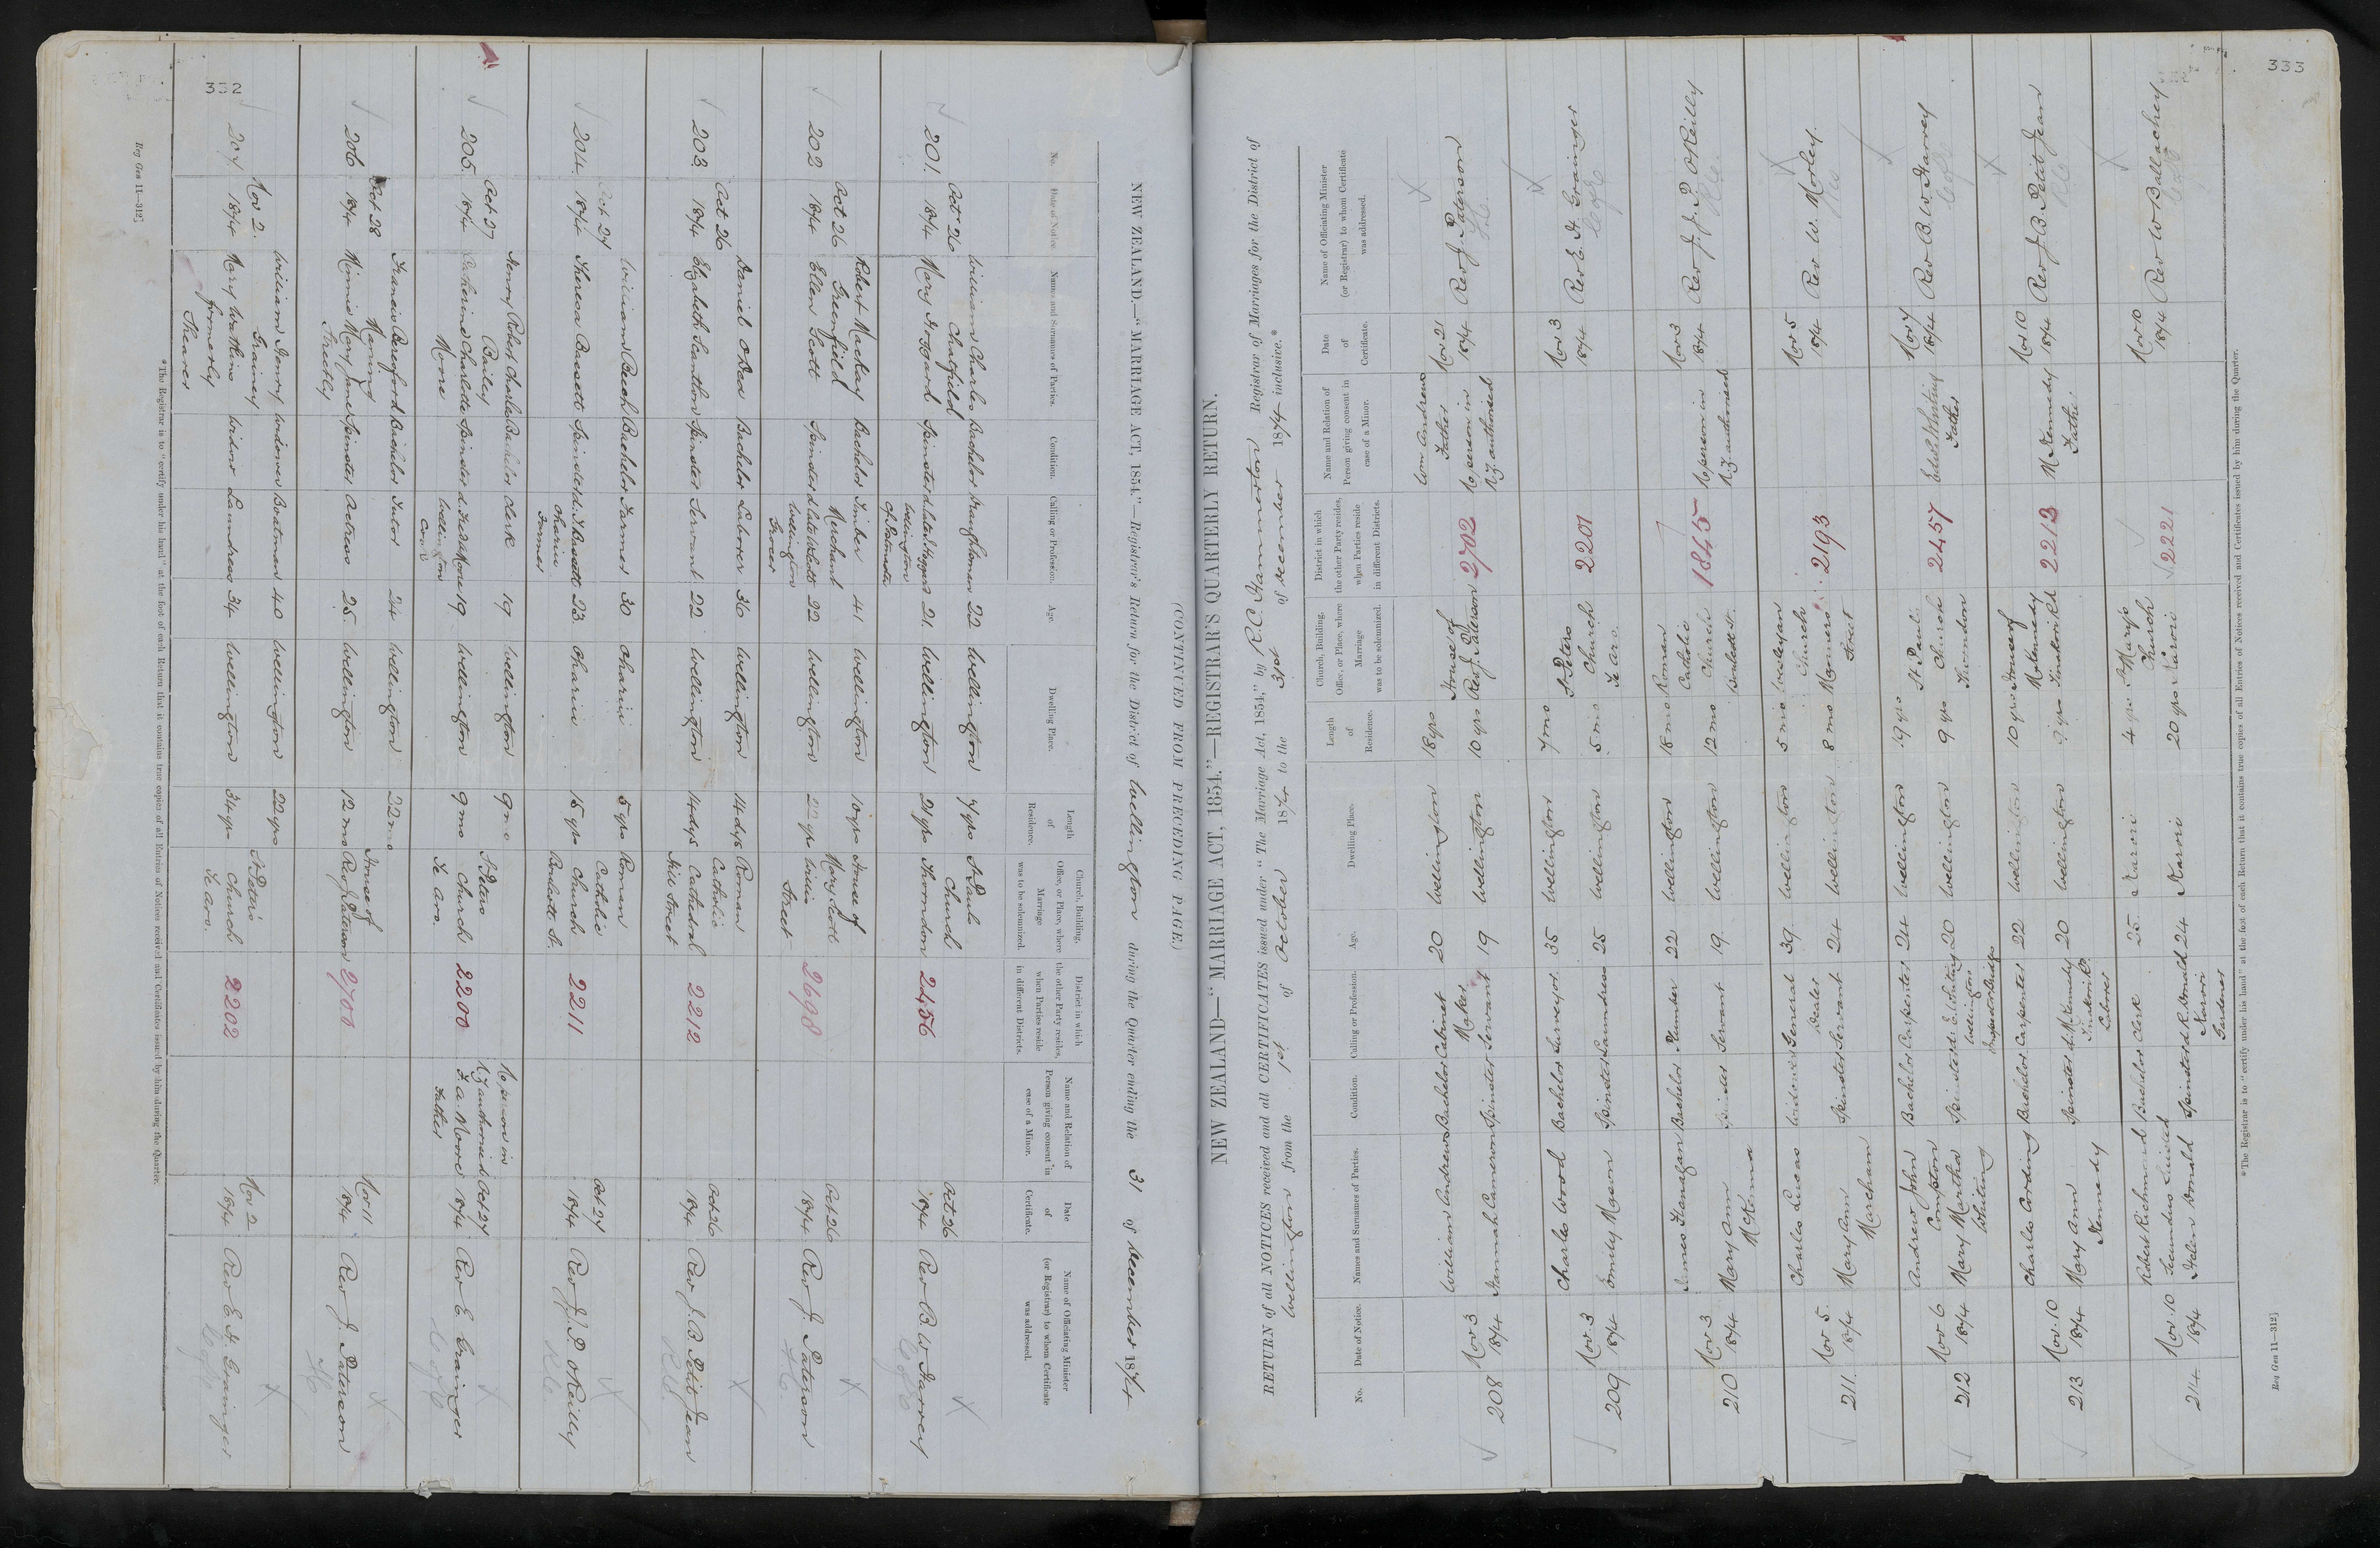 332
(CONTINUED FROM PRECEDING PAGE.)
NEW ZEALAND.—"MARRIAGE ACT, 1854."—Registrar's Return for the District of Wellington during the Quarter ending the 31 of December 1874
No.
Date of Notice.
Names and Surnames of Parties.
Condition.
Calling or Profession.
Age.
Dwelling Place.
Length of Residence.
Church, Building, Office, or Place, where Marriage was to be solemnized.
District in which the other Party resides, when Parties reside in different Districts.
Name and Relation of Person giving consent in case of a Minor.
Date of Certificate.
Name of Officiating Minister (or Registrar) to whom Certificate was addressed.
201. Oct 26 1874
William Charles Chatfield Bachelor Draughtsman 22 Wellington 7 yrs St Pauls
Mary Hoggard Spinster 21 Wellington 21 yrs Church Thorndon 2456 Oct 26 1874 Rev B W Harvey
C of E
202 Oct 26 1874
Robert Mackay Greenfield Bachelor Timber Merchant 41 Wellington 10 yrs House of
Ellen Scott Spinster 22 Wellington 22 yrs Mary Scott Willis Street 2698 Oct 26 1874 Rev J. Paterson
Wellington Grocer
203. Oct 26 1874
Daniel O'Dea Bachelor Laborer 36 Wellington 14 dys Roman
Elizabeth Scanthon Spinster Servant 22 Wellington 14 dys Catholic Cathedral Hill Street 2212 Oct 26 1874 Rev J. B. Petit Jean
RC
204. Oct 27 1874
William Beech Bachelor Farmer 30 Ohariu 5 yrs Roman
Theresa Bassett Spinster d. J. Bassett 23 Ohariu 15 yrs Catholic Church Boulcott St. 2211 Oct 27 1874 Rev J. P. O'Reilly
Ohariu Farmer
RC
205. Oct 27 1874
Henry Robert Charles Bailey Bachelor Clerk 19 Wellington 9 mo St Peters No person in N.Z authorised
Catherine Charlotte Moore Spinster 19 Wellington 9 mo Church Te Aro. 2200 F. A. Moore Father Oct 27 1874 Rev E Grainger
C of E
206 Oct 28 1874
Francis Beresford Manning Bachelor Tutor 24 Wellington 22 mo House of
Minnie Mary Jane Bachelor Spinster Actress 25 Wellington 12 mo Rev J Paterson 2700 Nov 11 1874 Rev J. Paterson
207 Nov 2. 1874
William Henry Grainey Widower Boatman 40 Wellington 22 yrs St Peter's
Mary Watkins formerly Shearer Widow Laundress 34 Wellington 34 yrs Church Te Aro. 2202 Nov 2 1874 Rev E H. Grainger
C of E
*The Registrar is to "certify under his hand" at the foot of each Return that it contains true copies of all Entries of Notices received and Certificates issued by him during the Quarter.
Reg Gen 11—312]
333
NEW ZEALAND—"MARRIAGE ACT, 1854."—REGISTRAR'S QUARTERLY RETURN.
RETURN of all NOTICES received and all CERTIFICATES issued under "The Marriage Act, 1854," by R. C. Hammerton Registrar of Marriages for the District of
Wellington from the 1st of October 1874 to the 31st of December 1874 inclusive.*
No.
Date of Notice.
Names and Surnames of Parties.
Condition.
Calling or Profession.
Age.
Dwelling Place.
Length of Residence.
Church, Building, Office, or Place, where Marriage was to be solemnized.
District in which the other Party resides, when Parties reside in different Districts.
Name and Relation of Person giving consent in case of a Minor.
Date of Certificate.
Name of Officiating Minister (or Registrar) to whom Certificate was addressed.
208 Nov 3 1874
William Andrews Bachelor Cabinet Maker 20 Wellington 18 yrs House of Wm Andrews Father
Hannah Cameron Spinster Servant 19 Wellington 10 yrs Rev J. Paterson 2702 No person in N.Z authorised Nov 21 1874 Rev J. Paterson
209 Nov. 3 1874
Charles Wood Bachelor Surveyor 35 Wellington 7 mo St Peters
Emily Mason Spinster Laundress 25 Wellington 5 mo Church Te Aro. 2201 Nov 3 1874 Rev E. H. Grainger
C of E
210 Nov 3 1874
James Flanagan Bachelor Plumber 22 Wellington 18 mo Roman Catholic
Mary Ann McKenna Spinster Servant 19. Wellington 12 mo Church Boulcott St. 1845 No person in N.Z authorised Nov 3 1874 Rev J. J. P. O'Reilly
RC
211. Nov 5. 1874
Charles Lucas Widower General Dealer 39. Wellington 5 mo Wesleyan Church
Mary Ann Marcham Spinster Servant 24 Wellington 8 mo Manners Street 2193 Nov 5 1874 Rev W. Morley.
212 Nov 6 1874
Andrew John Compton Bachelor Carpenter 24 Wellington 19 yrs St Pauls
Mary Martha Whiting Spinster d. E. Whiting 20 Wellington 9 yrs Church Thorndon 2457 Edwd Whiting Father Nov 7 1874 Rev B. W. Harvey
C of E
213 Nov. 10 1874
Charles Cording Bachelor Carpenter 22 Wellington 10 yrs House of
Mary Ann Kennedy Spinster d. M. Kennedy 20 Wellington 9 yrs M Kennedy Tinakori Rd 2213 M Kennedy Father Nov. 10 1874 Rev J B. Petit Jean
Tinakori Rd. Laborer
214. Nov. 10 1874
Robert Richmond Bachelor Clerk 25. Karori 4 yrs St Mary's
Helen Donald Spinster d. R. Donald 24 Karori 20 yrs Church Karori 2221 Nov 10 1874 Rev W Ballachey
Karori Gardener
*The Registrar is to "certify under his hand" at the foot of each Return that it contains true copies of all Entries of Notices received and Certificates issued by him during the Quarter.
Reg Gen 11—312]